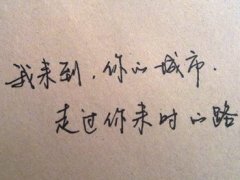 我来到，你的城市．
走过你来时的路